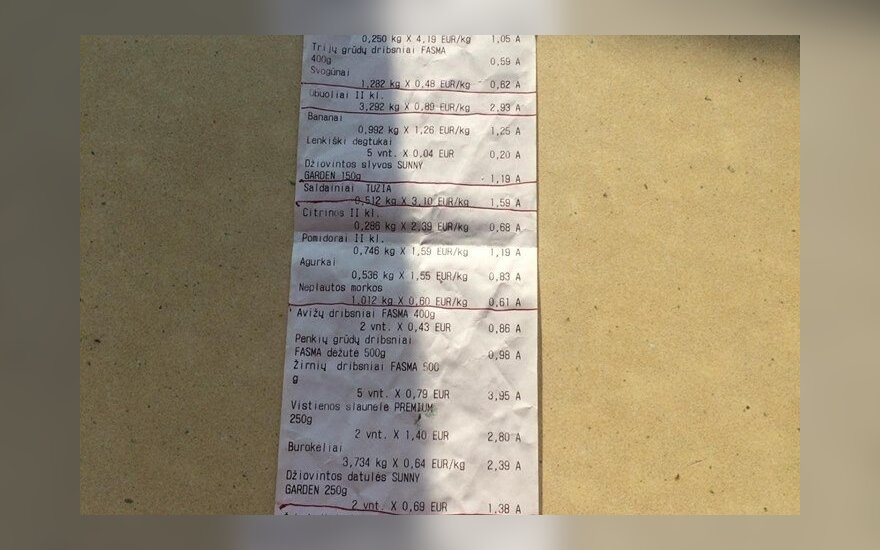 0,250 kg X 4,19 EUR/kg 1,05 A
Trijų grūdų dribsniai FASMA
400g 0,59 A
Svogūnai
1,282 kg X 0,48 EUR/kg 0,62 A
Obuoliai II kl.
3,292 kg X 0,89 EUR/kg 2,93 A
Bananai
0,992 kg X 1,26 EUR/kg 1,25 A
Lenkiški degtukai
5 vnt. X 0,04 EUR 0,20 A
Džiovintos slyvos SUNNY
GARDEN 150g 1,19 A
Saldainiai TUZIA
0,512 kg X 3,10 EUR/kg 1,59 A
Citrinos II kl.
0,286 kg X 2,39 EUR/kg 0,68 A
Pomidorai II kl.
0,746 kg X 1,59 EUR/kg 1,19 A
Agurkai
0,536 kg X 1,55 EUR/kg 0,83 A
Neplautos morkos
1,012 kg X 0,60 EUR/kg 0,61 A
Avižų dribsniai FASMA 400g
2 vnt. X 0,43 EUR 0,86 A
Penkių grūdų dribsniai
FASMA dėžutė 500g 0,98 A
Žirnių dribsniai FASMA 500
g
5 vnt. X 0,79 EUR 3,95 A
Vištienos šlaunelė PREMIUM
250g
2 vnt. X 1,40 EUR 2,80 A
Burokėliai
3,734 kg X 0,64 EUR/kg 2,39 A
Džiovintos datulės SUNNY
GARDEN 250g
2 vnt. X 0,69 EUR 1,38 A